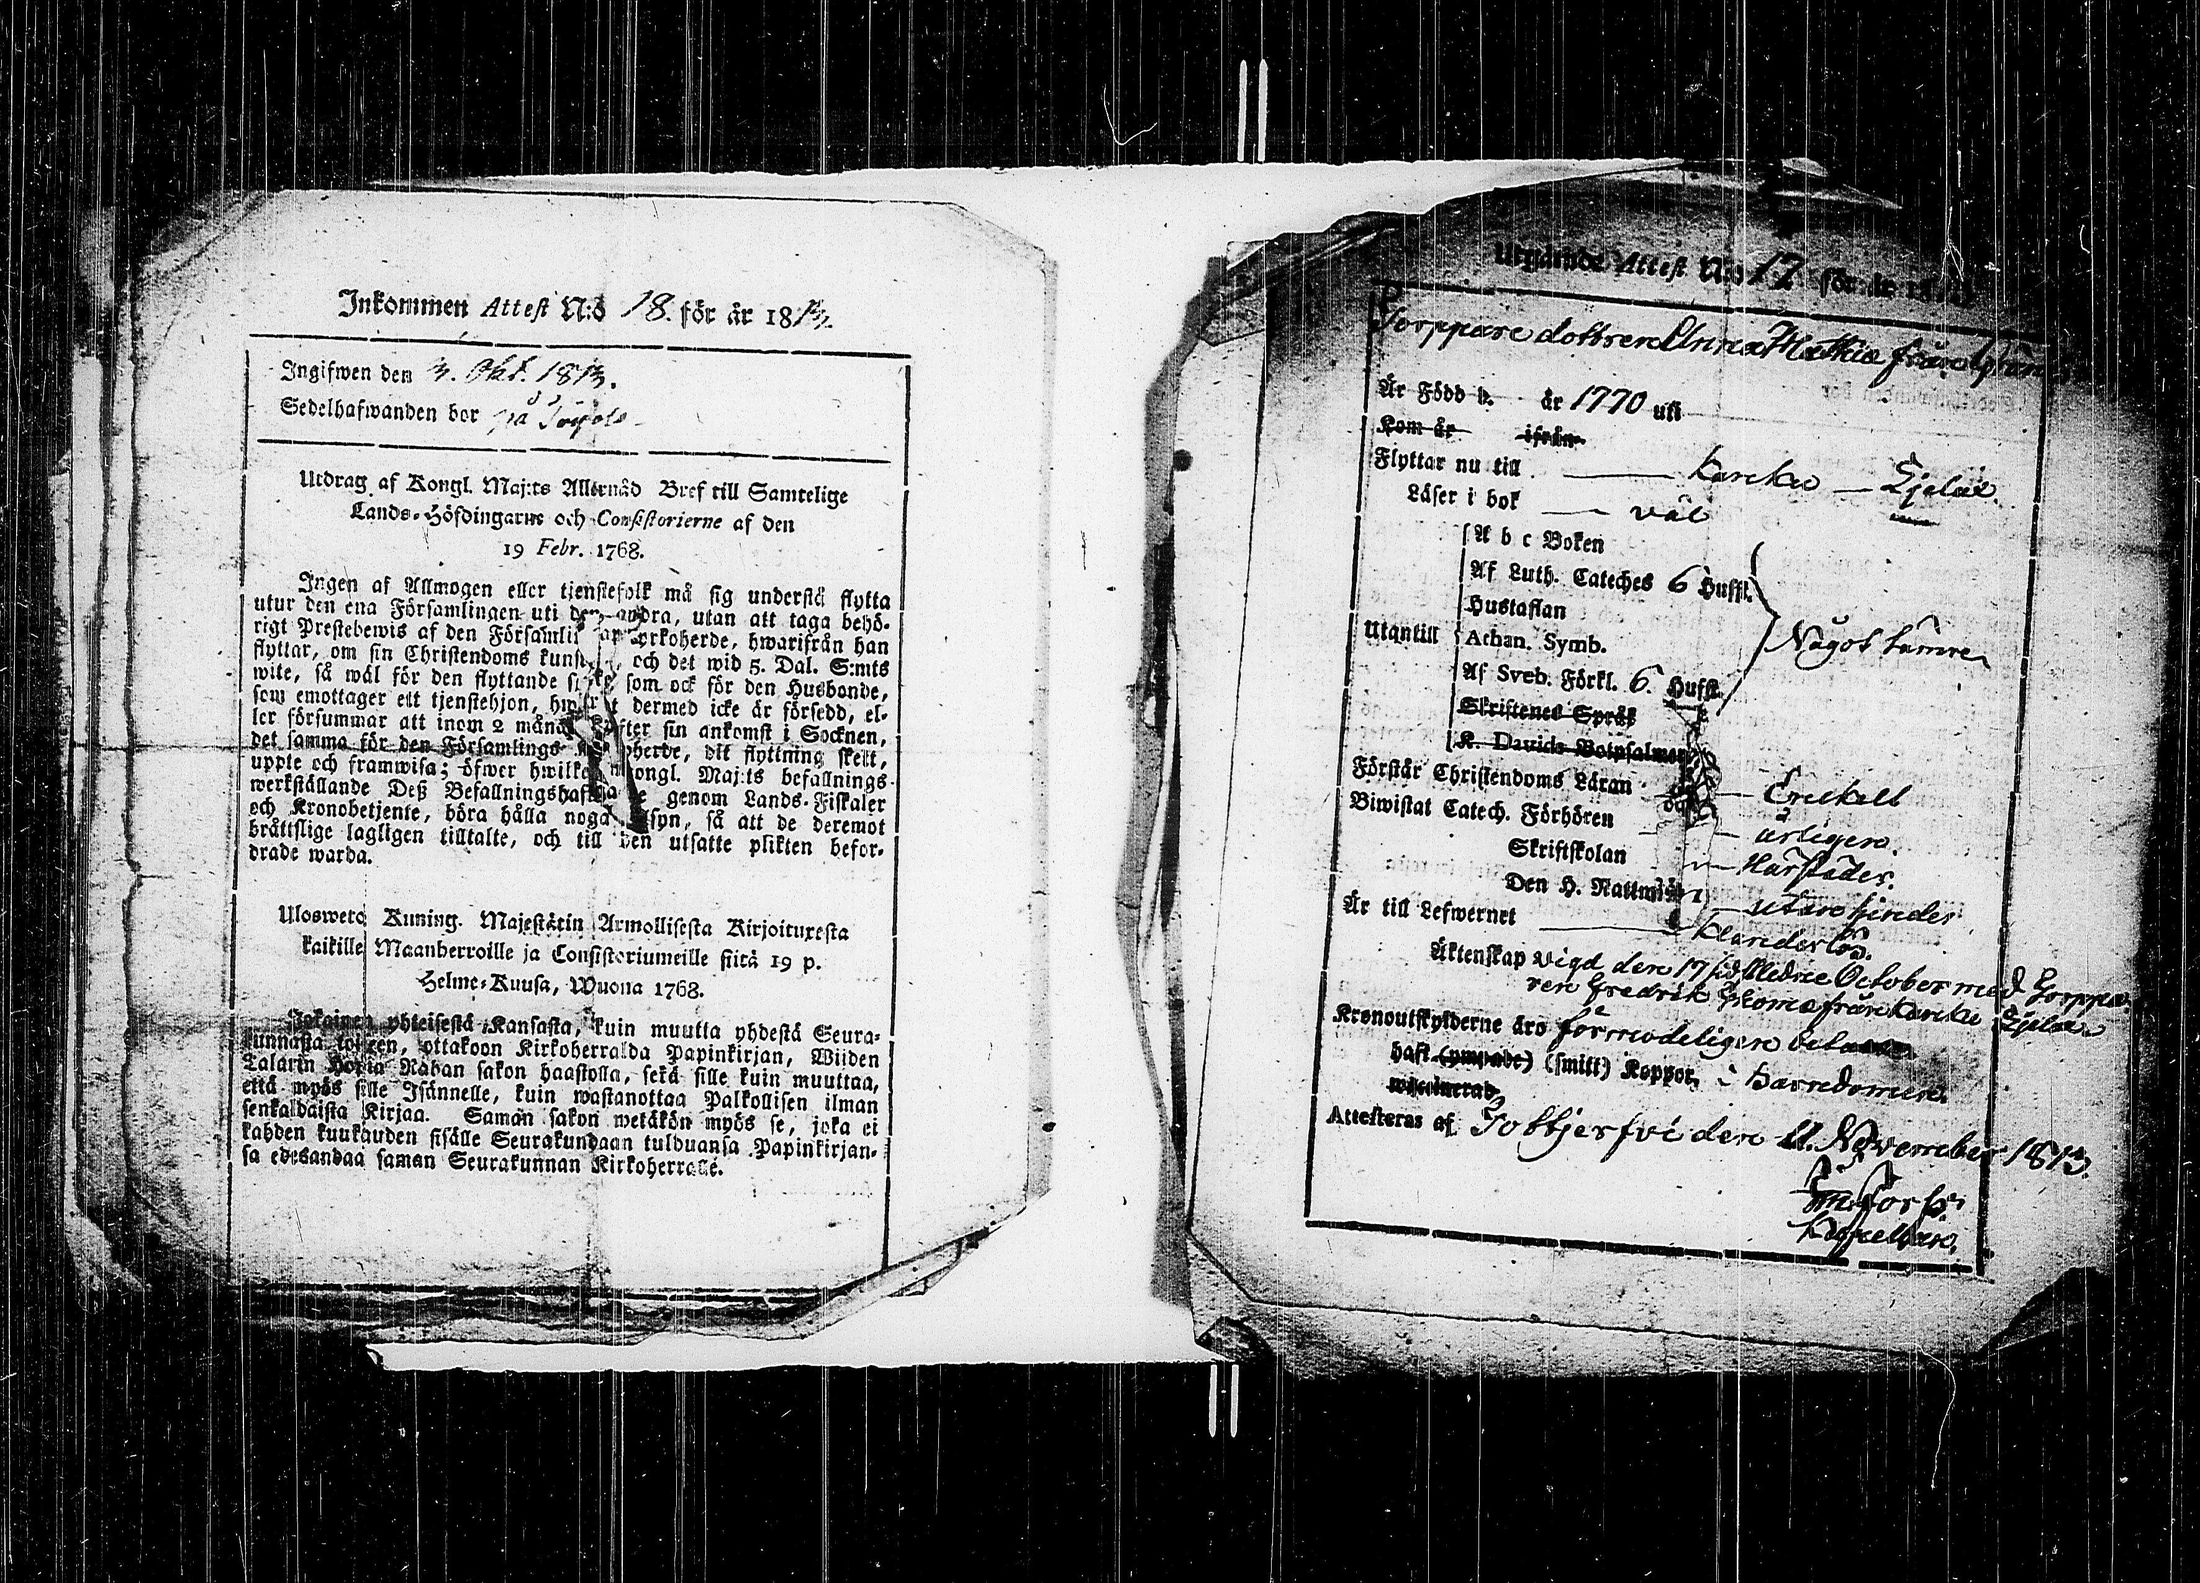 Inkommen Attest N:o 18. för år 1813.
Ingifwen den 3. Okt. 1813.
Sedelhafwanden bor på
Utdrag af Kongl. Maj:ts Allernåd Bref till Samtelige
Lands-Höfdingarne och Consistorierne af den
19 Febr. 1768.
Ingen af Allmogen eller tjenstefolk må sig understå flytta
utur den ena Församlingen uti den andra, utan att taga behö-
rigt Prestebewis af den Församlingar Kyrkoherde, hwarifrån han
flyttar, om sin Christendoms kunskap, och det wid 5. Dal. S:mts
wite, så wäl för den flyttande sielf, som ock för den Husbonde,
som emottager ett tjenstehjon, hwilket dermed icke är försedd, el-
ler försummar att inom 2 månader efter sin ankomst i Socknen,
det samma för den Församlings Kyrkoherde, dit flyttning skett,
uppte och framwisa; öfwer hwilket Kongl. Maj:ts befallnings
werkställande Deß Befallningshafwande genom Lands-Fiskaler
och Kronobetjente, böra hålla noga tilsyn, så att de deremot
bråttslige lagligen tilltalte, och till den utsatte plikten befor-
drade warda.
Ulosweto Kuning. Majestätin Armollisesta Kirjoituxesta
kaikille Maanherroille ja Consistoriumeille siitä 19 p.
Helme-Kuusa, Wuona 1768.
Jokainen yhteisestä Kansasta, kuin muutta yhdestä Seura-
kunnasta toiseen, ottakoon Kirkoherralda Papinkirjan, Wiiden
Talarin Hopia Rahan sakon haastolla, sekä sille kuin muuttaa,
että myös sille Isännelle, kuin wastanottaa Palkollisen ilman
senkaldaista Kirjaa. Saman sakon wetäkön myös se, joka ei
kahden kuukauden sisälle Seurakundaan tulduansa Papinkirjan-
sa edesandaa saman Seurakunnan Kirkoherralle.
Utgående Attest N:o 17 för år 1813
Torppare dottren Anna Mathie från
Är Född d. år 1770 uti
Kom år ifrån
Flyttar nu till Karcku Kjelax
Läser i bok väl
A b c Boken
Af Luth. Cateches 6 Hufst.
Hustaflan
Utantill Athan. Symb. Något sämre
Af Sveb. Förkl. 6. Hufst.
Skriftenes Språk
K. Davids Botpsalmer
Förstår Christendoms Läran Enckelt
Biwistat Catech. Förhören årligen.
Skriftskolan
Den H. Nattward utan hinder
Är till Lefwernet klanderlös.
Äktenskap vigd den 17 sidstledne October med Torppa-
ren Fredrik Thomæ från Karcku Kjelax
Kronoutskylderne äro förmodeligen betalde
haft (ympade) (smitt) Koppor, i barndomen.
wiscinerad,
Attesteras af Tottjerfvi den 11. November 1813.
Kapellan.